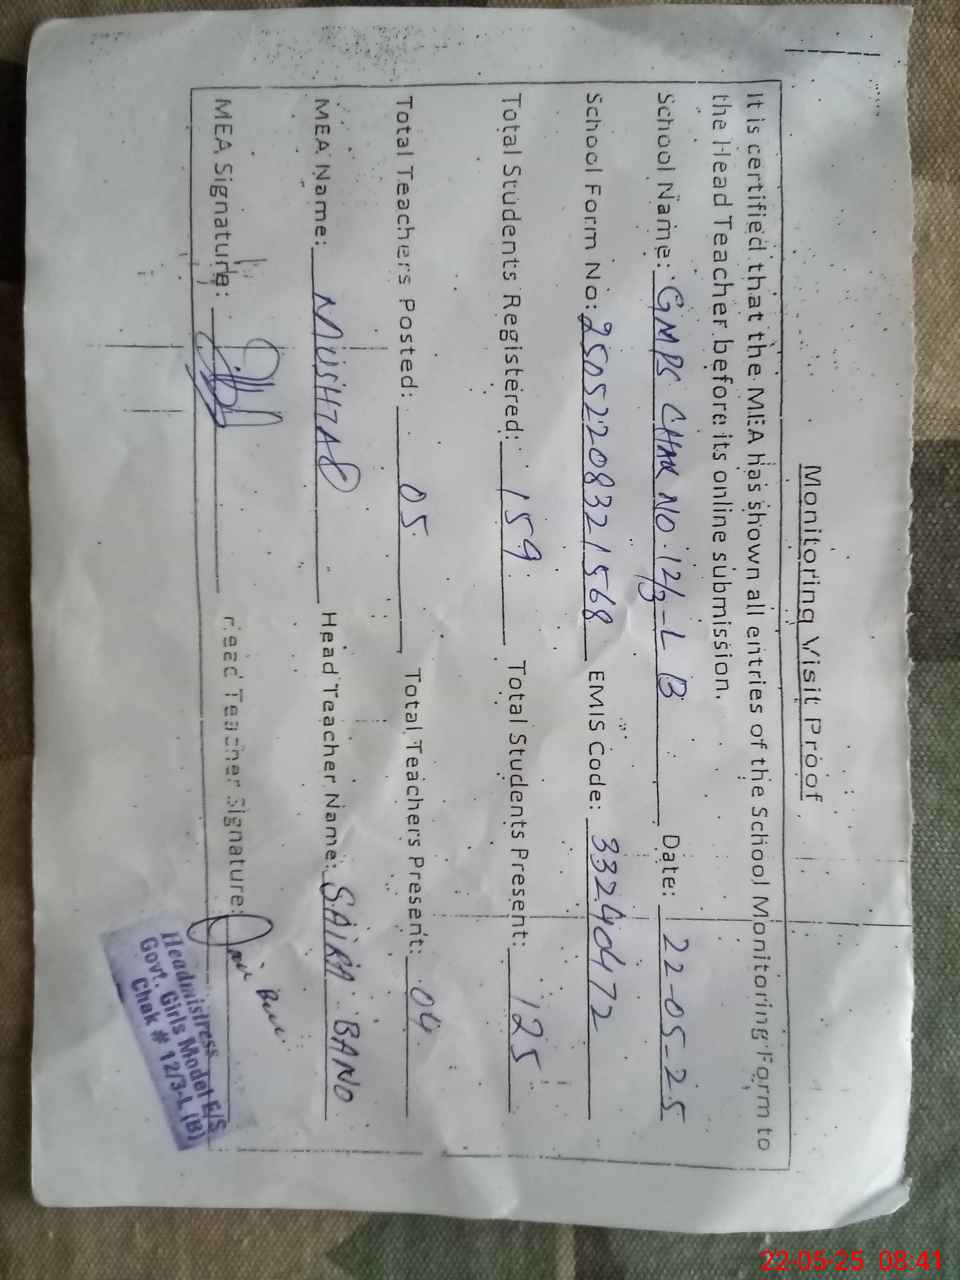 Monitoring Visit Proof
It is certified that the MEA has shown all entries of the School Monitoring Form to
the Head Teacher before its online submission.
School Name: GMPS CHAK NO. 12/3-L B Date: 22-05-25
School Form No: 25052208321568 EMIS Code: 33240472
Total Students Registered: 159 Total Students Present: 125
Total Teachers Posted: 05 Total Teachers Present: 04
MEA Name: MUSHTAQ Head Teacher Name: SAIRA BANO
MEA Signature: Head Teacher Signature:
Headmistress
Govt. Girls Model E/S
Chak # 12/3-L (B)
22-05-25 08:41